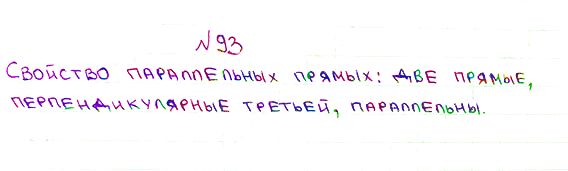 №93
Свойство параллельных прямых: две прямые,
перпендикулярные третьей, параллельны.